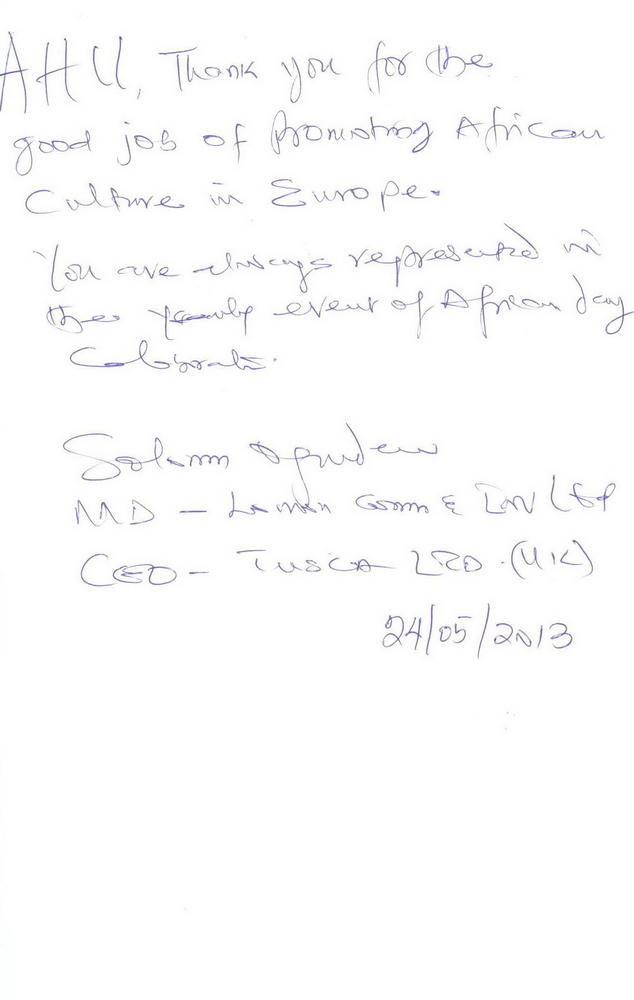 AHU, Thank you for the
good job of promoting African
Culture in Europe.
You are always represented in
the yearly event of African day
MD - Comm & INV Ltd
CEO - TUSCA LTD. (UK)
24/05/2013